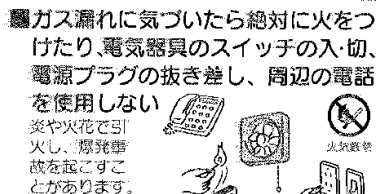 ■ガス漏れに気づいたら絶対に火をつ
けたり、電気器具のスイッチの入・切、
電源プラグの抜き差し、周辺の電話
を使用しない
炎や火花で引
火し、爆発事
故を起こすこ
とがあります。
火気厳禁